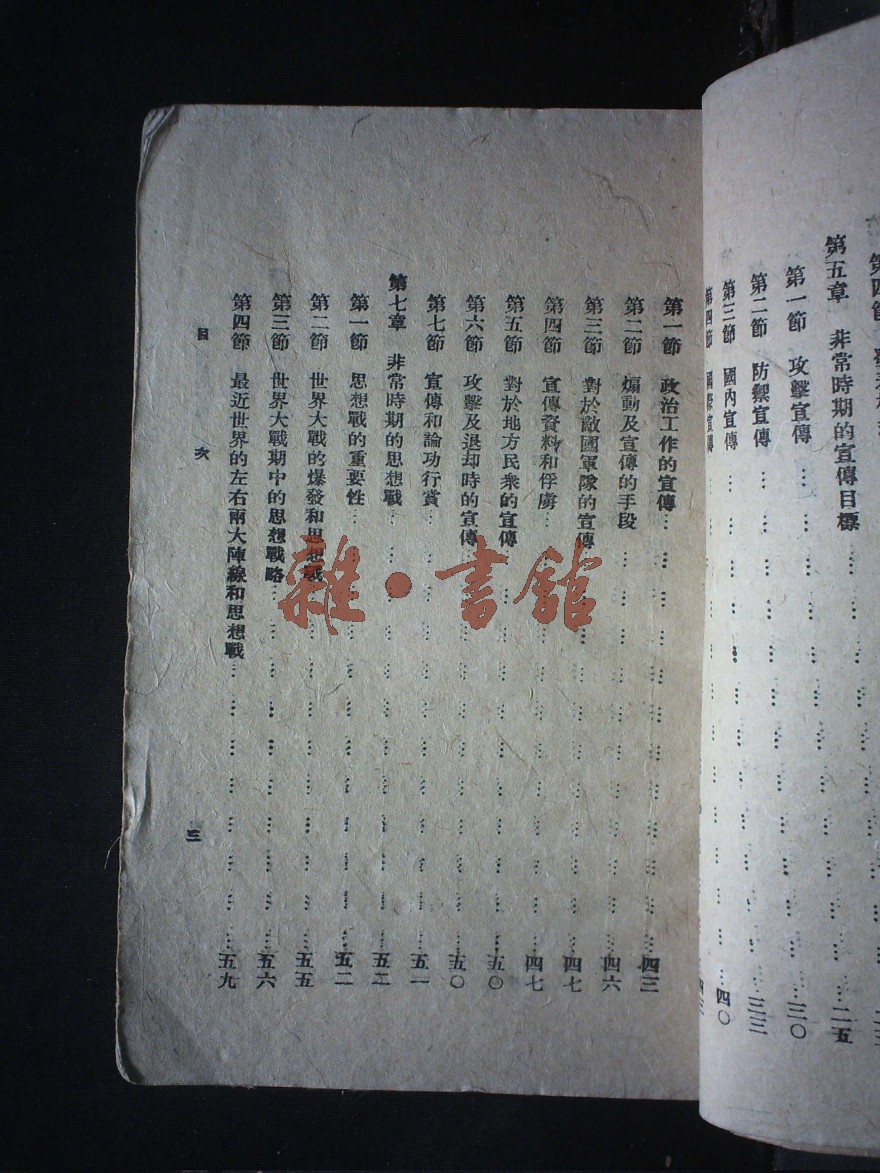 第五章　非常時期的宣傳目標……二五
第一節　攻擊宣傳……三〇
第二節　防禦宣傳……三三
第三節　國內宣傳……四〇
第四節　國際宣傳
第一節　政治工作的宣傳……四三
第二節　煽動及宣傳的手段……四六
第三節　對於敵國軍隊的宣傳……四七
第四節　宣傳資料和俘虜……四七
第五節　對於地方民衆的宣傳……五〇
第六節　攻擊及退却時的宣傳……五〇
第七節　宣傳和論功行賞……五一
第七章　非常時期的思想戰……五二
第一節　思想戰的重要性……五二
第二節　世界大戰的爆發和思想戰……五五
第三節　世界大戰期中的思想戰略……五六
第四節　最近世界的左右兩大陣線和思想戰……五九
目次
三
雜·書館